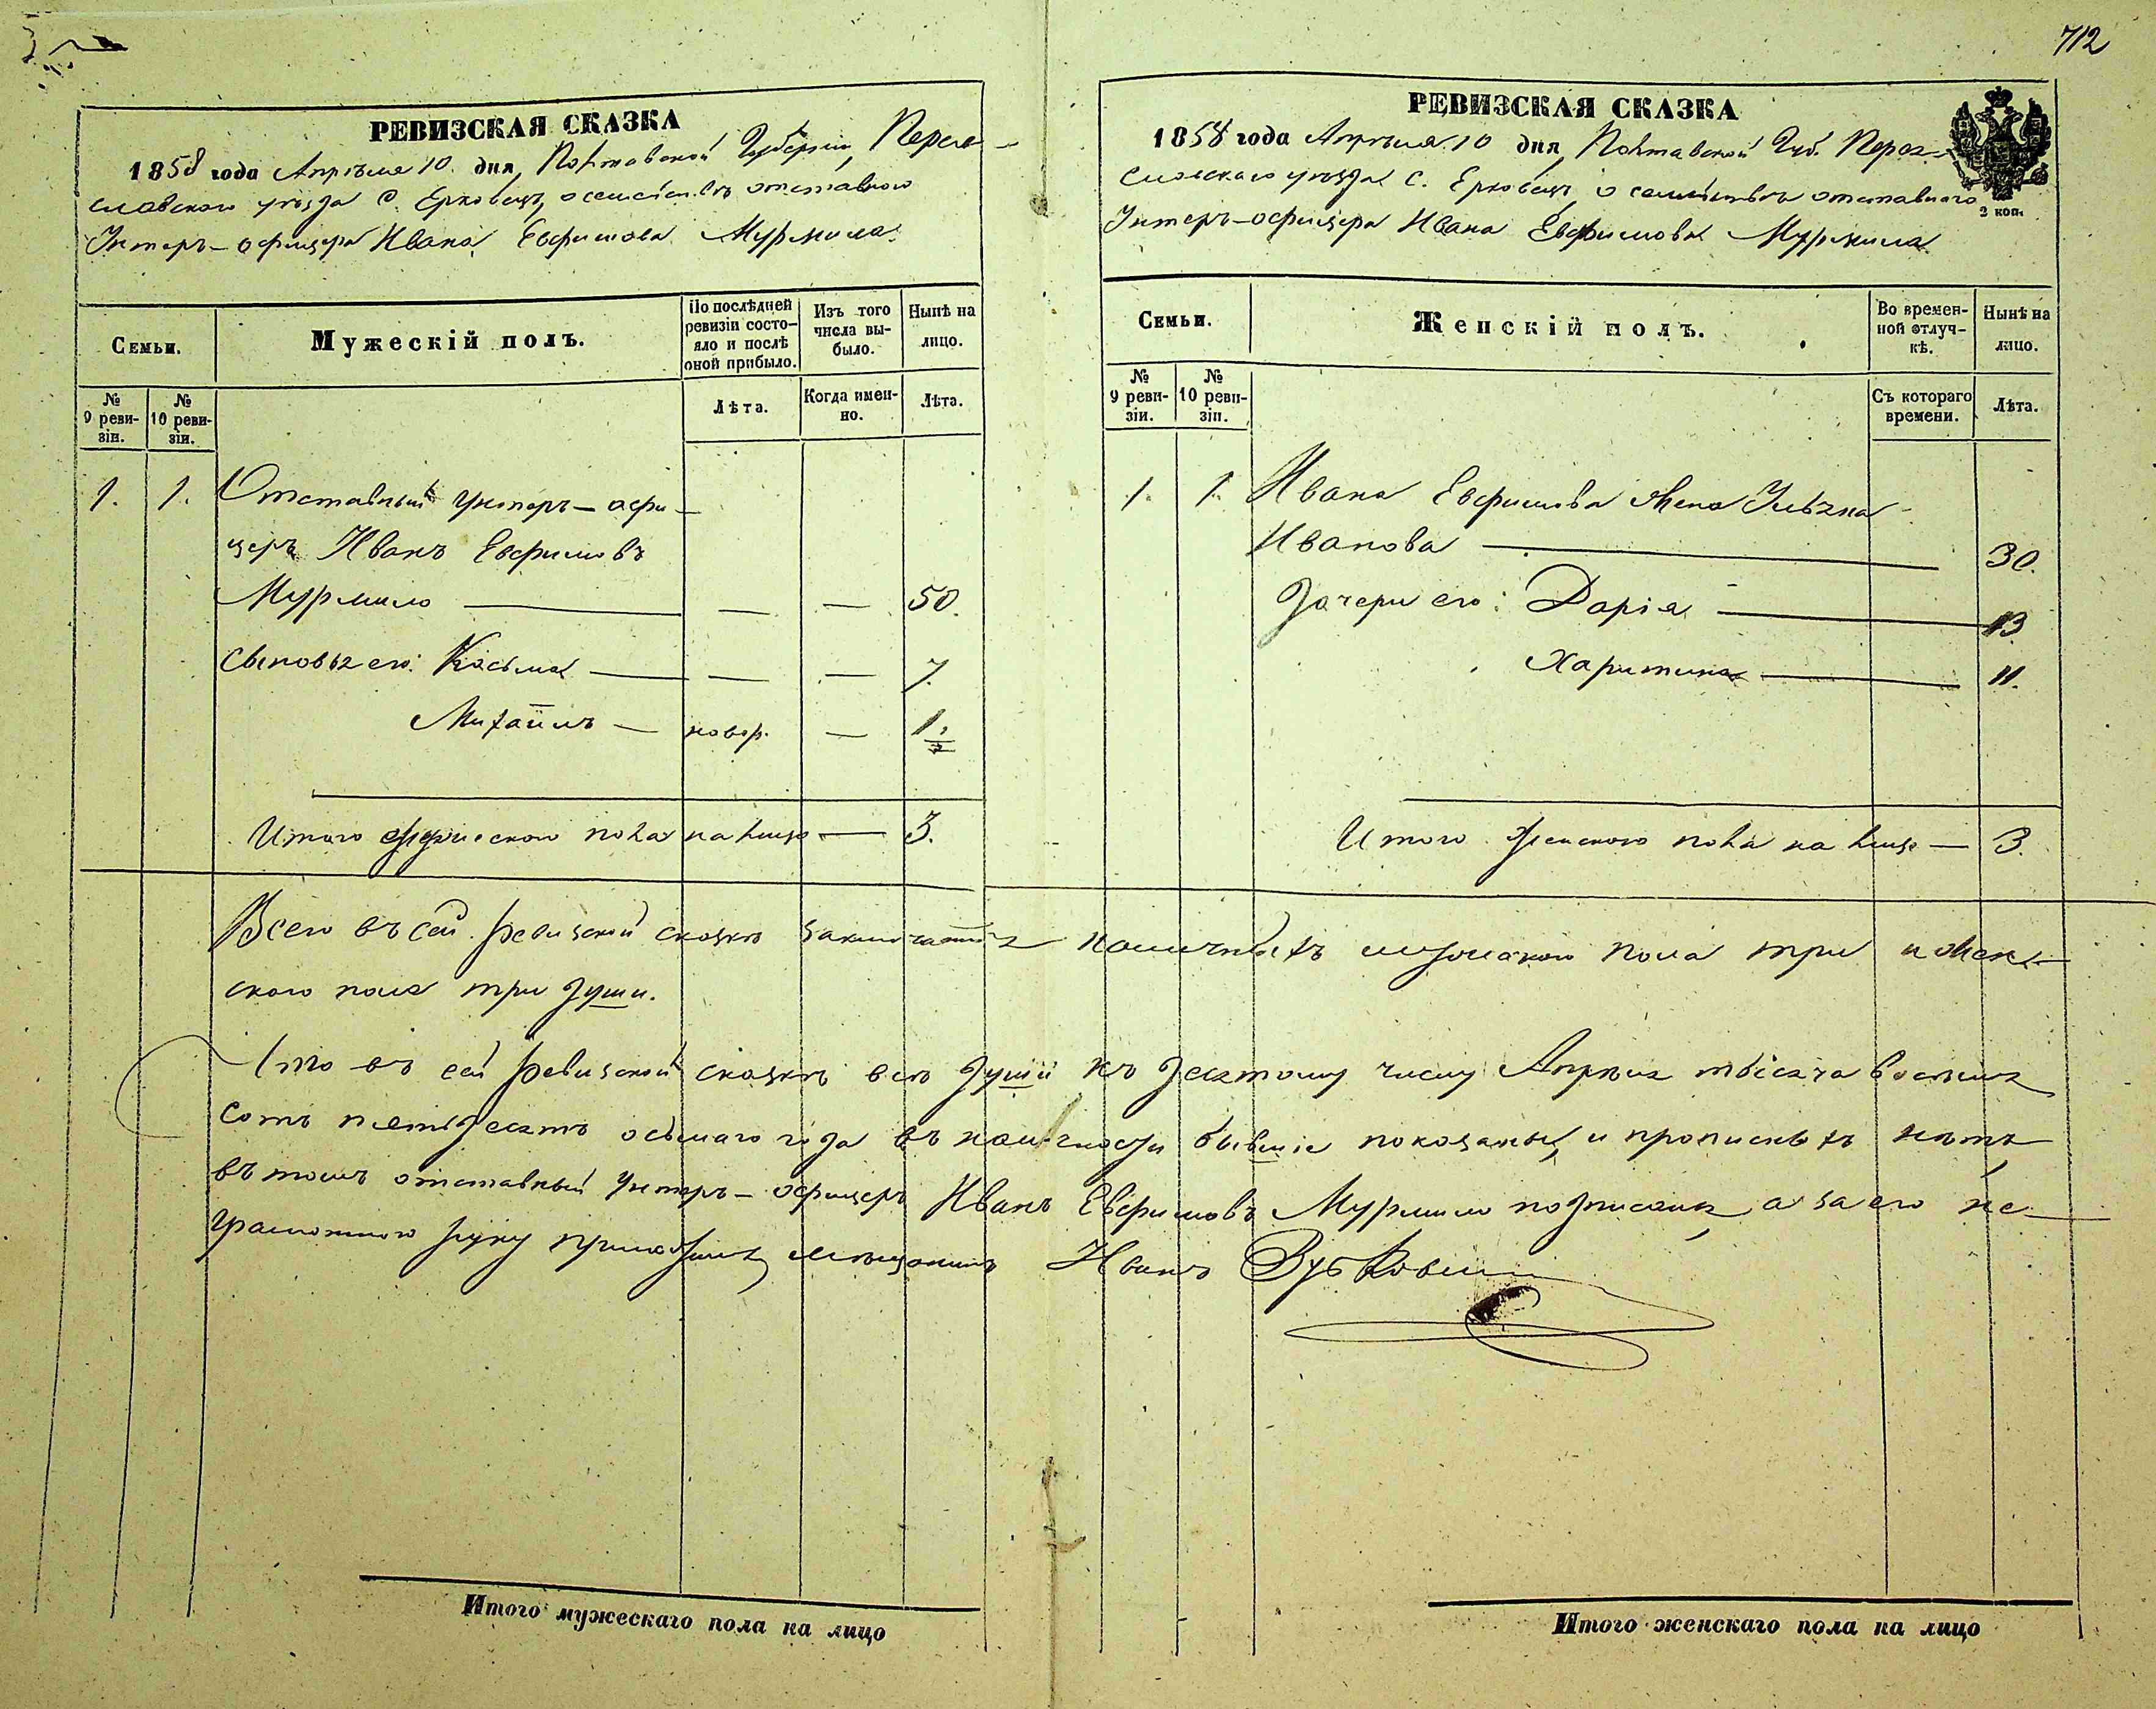 712
РЕВИЗСКАЯ СКАЗКА
1858 года Апрѣля 10. дня, Полтавской Губерніи, Перея-
славскаго уѣзда С. Ерковецъ, о семействѣ отставнаго
Унтеръ-офицера Ивана Евфимова Мурмила.
Семьи.
Мужескій полъ.
По послѣдней ревизіи состояло и послѣ оной прибыло.
Изъ того числа выбыло.
Нынѣ на лицо.
№ 9 ревизіи.
№ 10 ревизіи.
Лѣта.
Когда именно.
Лѣта.
1. 1. Отставный Унтеръ-офи-
церъ Иванъ Евфимовъ
Мурмило — — — 50.
Сыновья его: Косьма — — — 7.
Михаилъ — новор. — 1.
Итого мужескаго пола на лицо — 3.
РЕВИЗСКАЯ СКАЗКА
1858 года Апрѣля 10 дня, Полтавской Губ. Перея-
славскаго уѣзда С. Ерковецъ, о семействѣ отставнаго
2 коп.
Унтеръ-офицера Ивана Евфимова Мурмила
Семьи.
Женскій полъ.
Во временной отлучкѣ.
Нынѣ на лицо.
№ 9 ревизіи.
№ 10 ревизіи.
Съ котораго времени.
Лѣта.
1. 1. Ивана Евфимова жена
Иванова — 30.
Дочери его: Дарія — 13
Харитина — 11.
Итого женскаго пола на лицо — 3.
Всего въ сей ревизской сказкѣ заключается наличныхъ мужескаго пола три и жен-
скаго пола три души.
Что въ сей ревизской сказкѣ всѣ души къ десятому числу Апрѣля тысяча восемь
сотъ пятьдесятъ осьмаго года въ наличности бывшіе показаны, и прописныхъ нѣтъ
въ томъ отставный Унтеръ-офицеръ Иванъ Евфимовъ Мурмило подписался, а за его не-
грамотного руку приложилъ мѣщанинъ Иванъ
Итого мужескаго пола на лицо
Итого женскаго пола на лицо